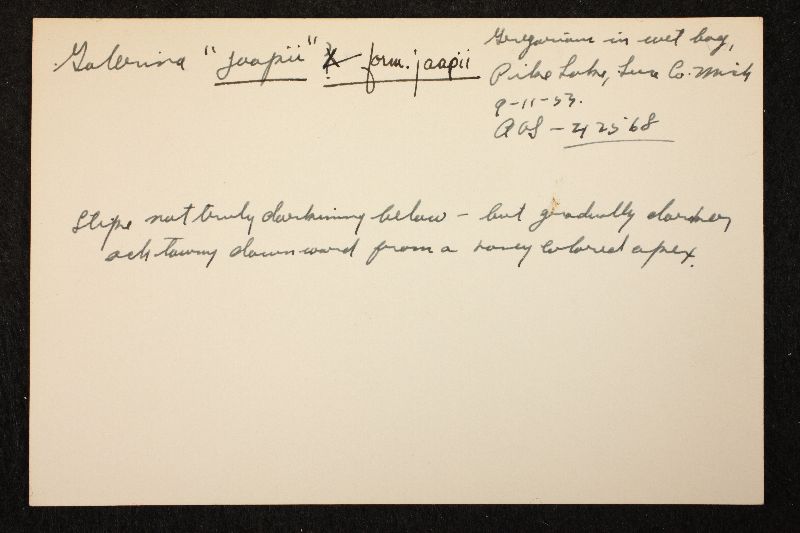 Galerina "jaapii" form. jaapii
Gregarious in wet bog,
Pike Lake, Luce Co. Mich
9-11-53.
AHS - 42568
Stipe not truly darkening below - but gradually darker
och tawny downward from a honey colored apex.